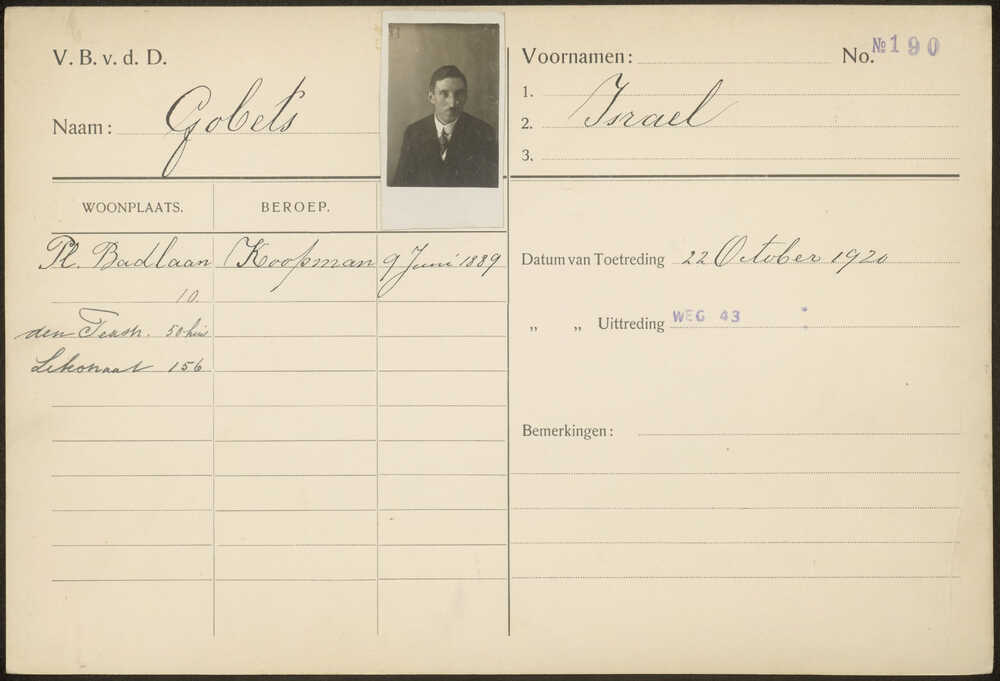 V. B. v. d. D.
Naam: Gobets
Voornamen:
No. № 190
1.
2. Israel
3.
WOONPLAATS.
BEROEP.
Pl. Badlaan Koopman 9 Juni 1889
10.
den 50 huis
156
Datum van Toetreding 22 October 1920
„ „ Uittreding WEG 43 :
Bemerkingen: